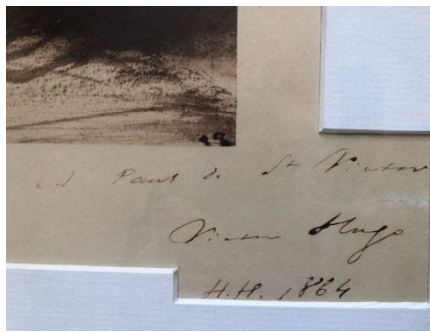 Paul de St Victor
Victor Hugo
H.H. 1864